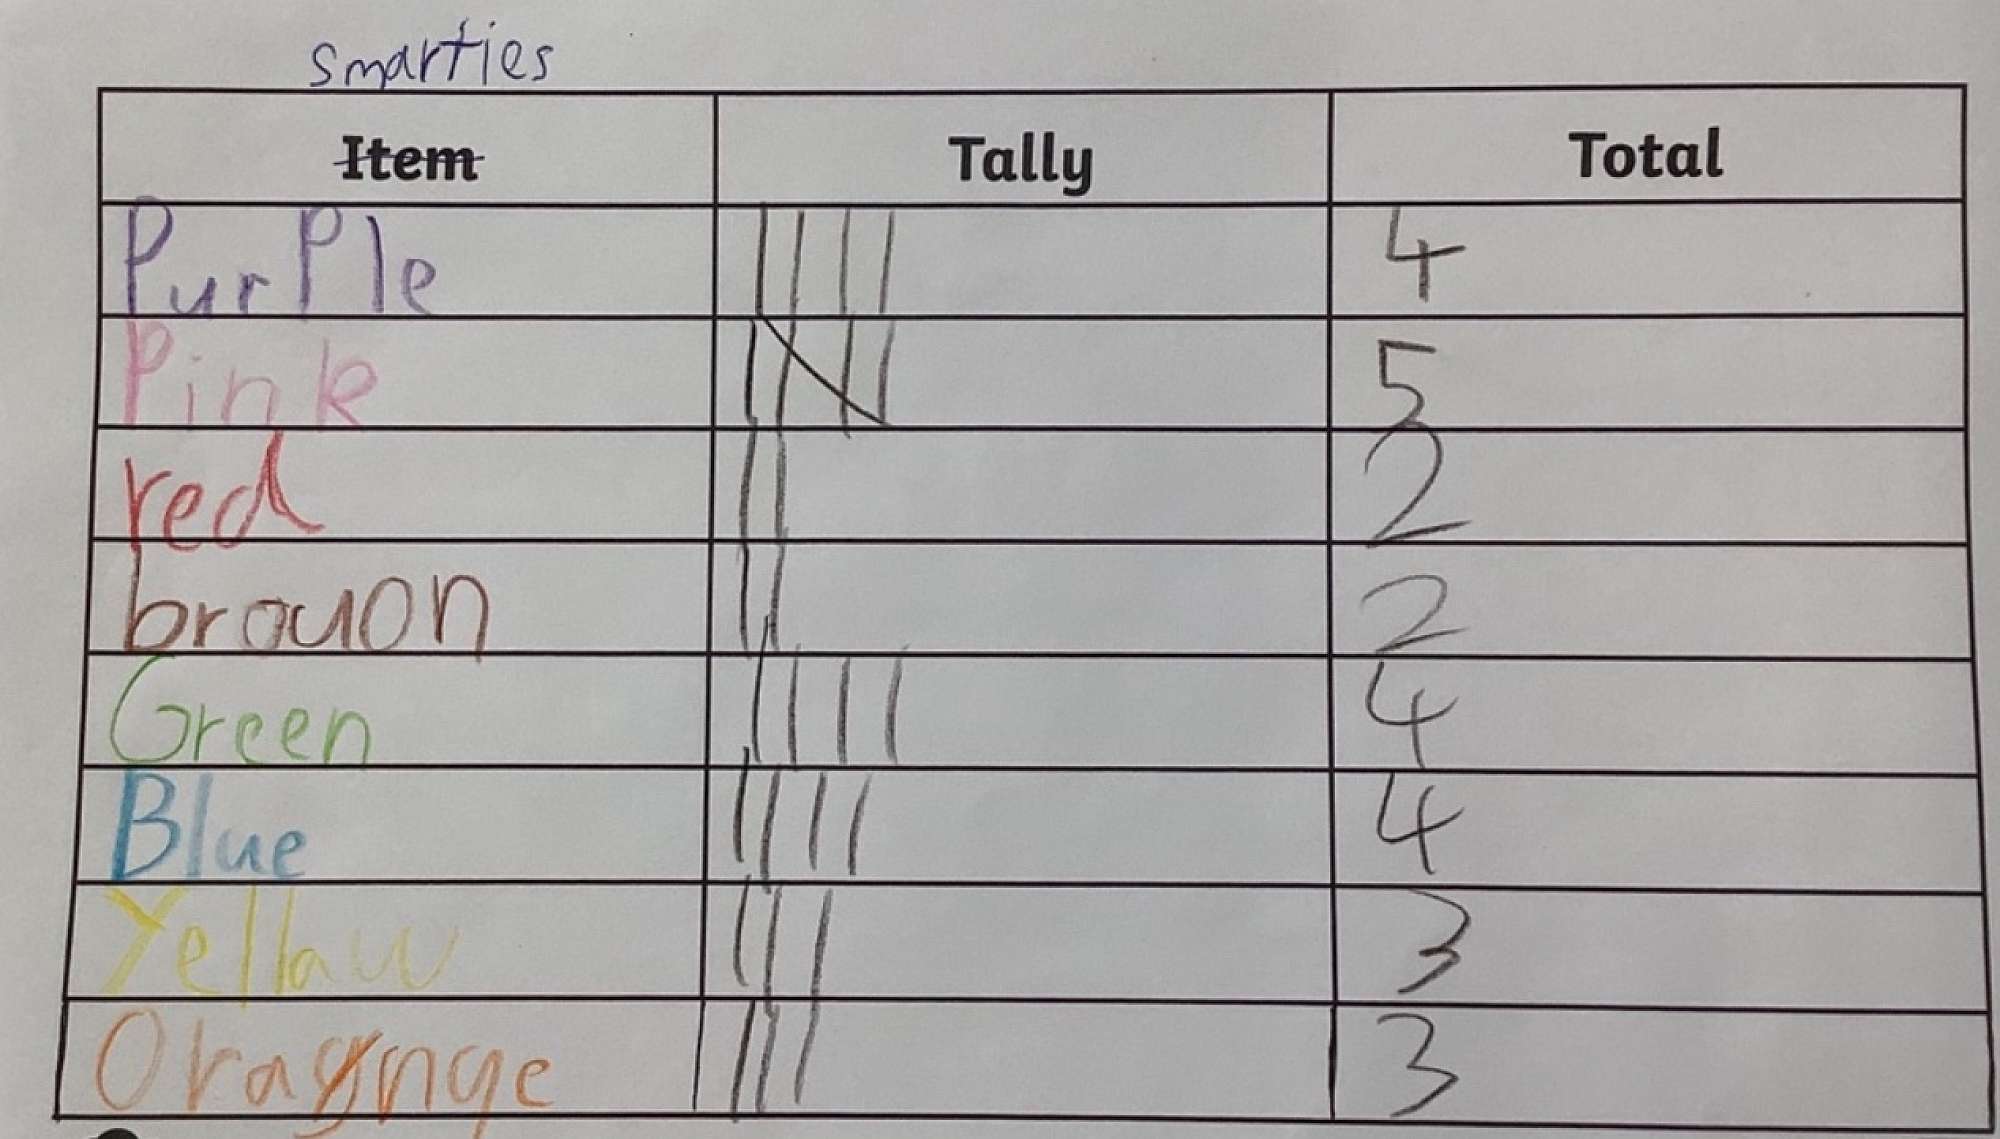 smarties
Item Tally Total
Purple |||| 4
Pink 5
red || 2
brouon || 2
Green |||| 4
Blue |||| 4
Yellaw ||| 3
Oragnge ||| 3